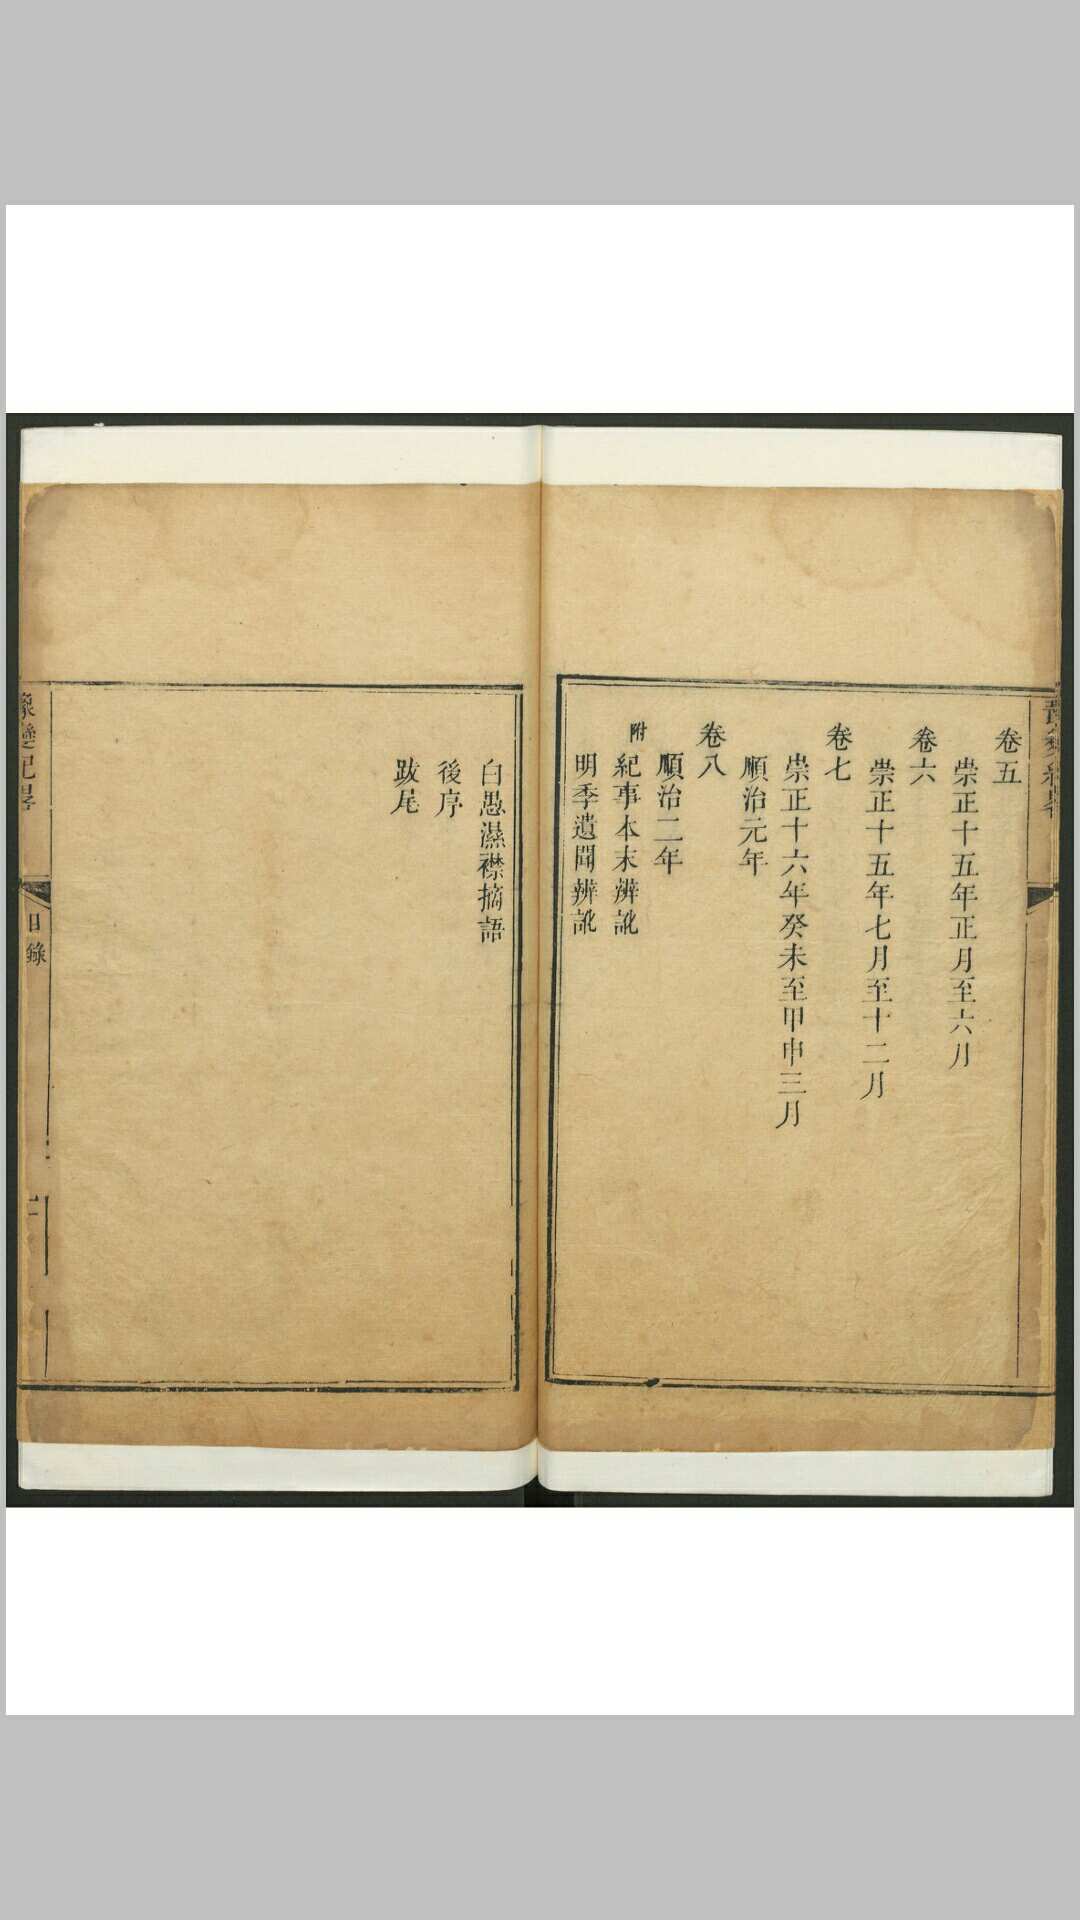 卷五
崇正十五年正月至六月
卷六
崇正十五年七月至十二月
卷七
崇正十六年癸未至甲申三月
順治元年
卷八
順治二年
附紀事本末辨訛
明季遺聞辨訛
白愚濕襟摘語
後序
跋尾
豫變紀畧
目錄